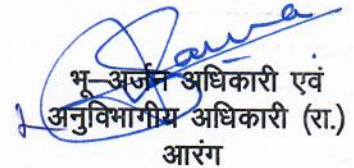 भू–अर्जन अधिकारी एवं
अनुविभागीय अधिकारी (रा.)
आरंग